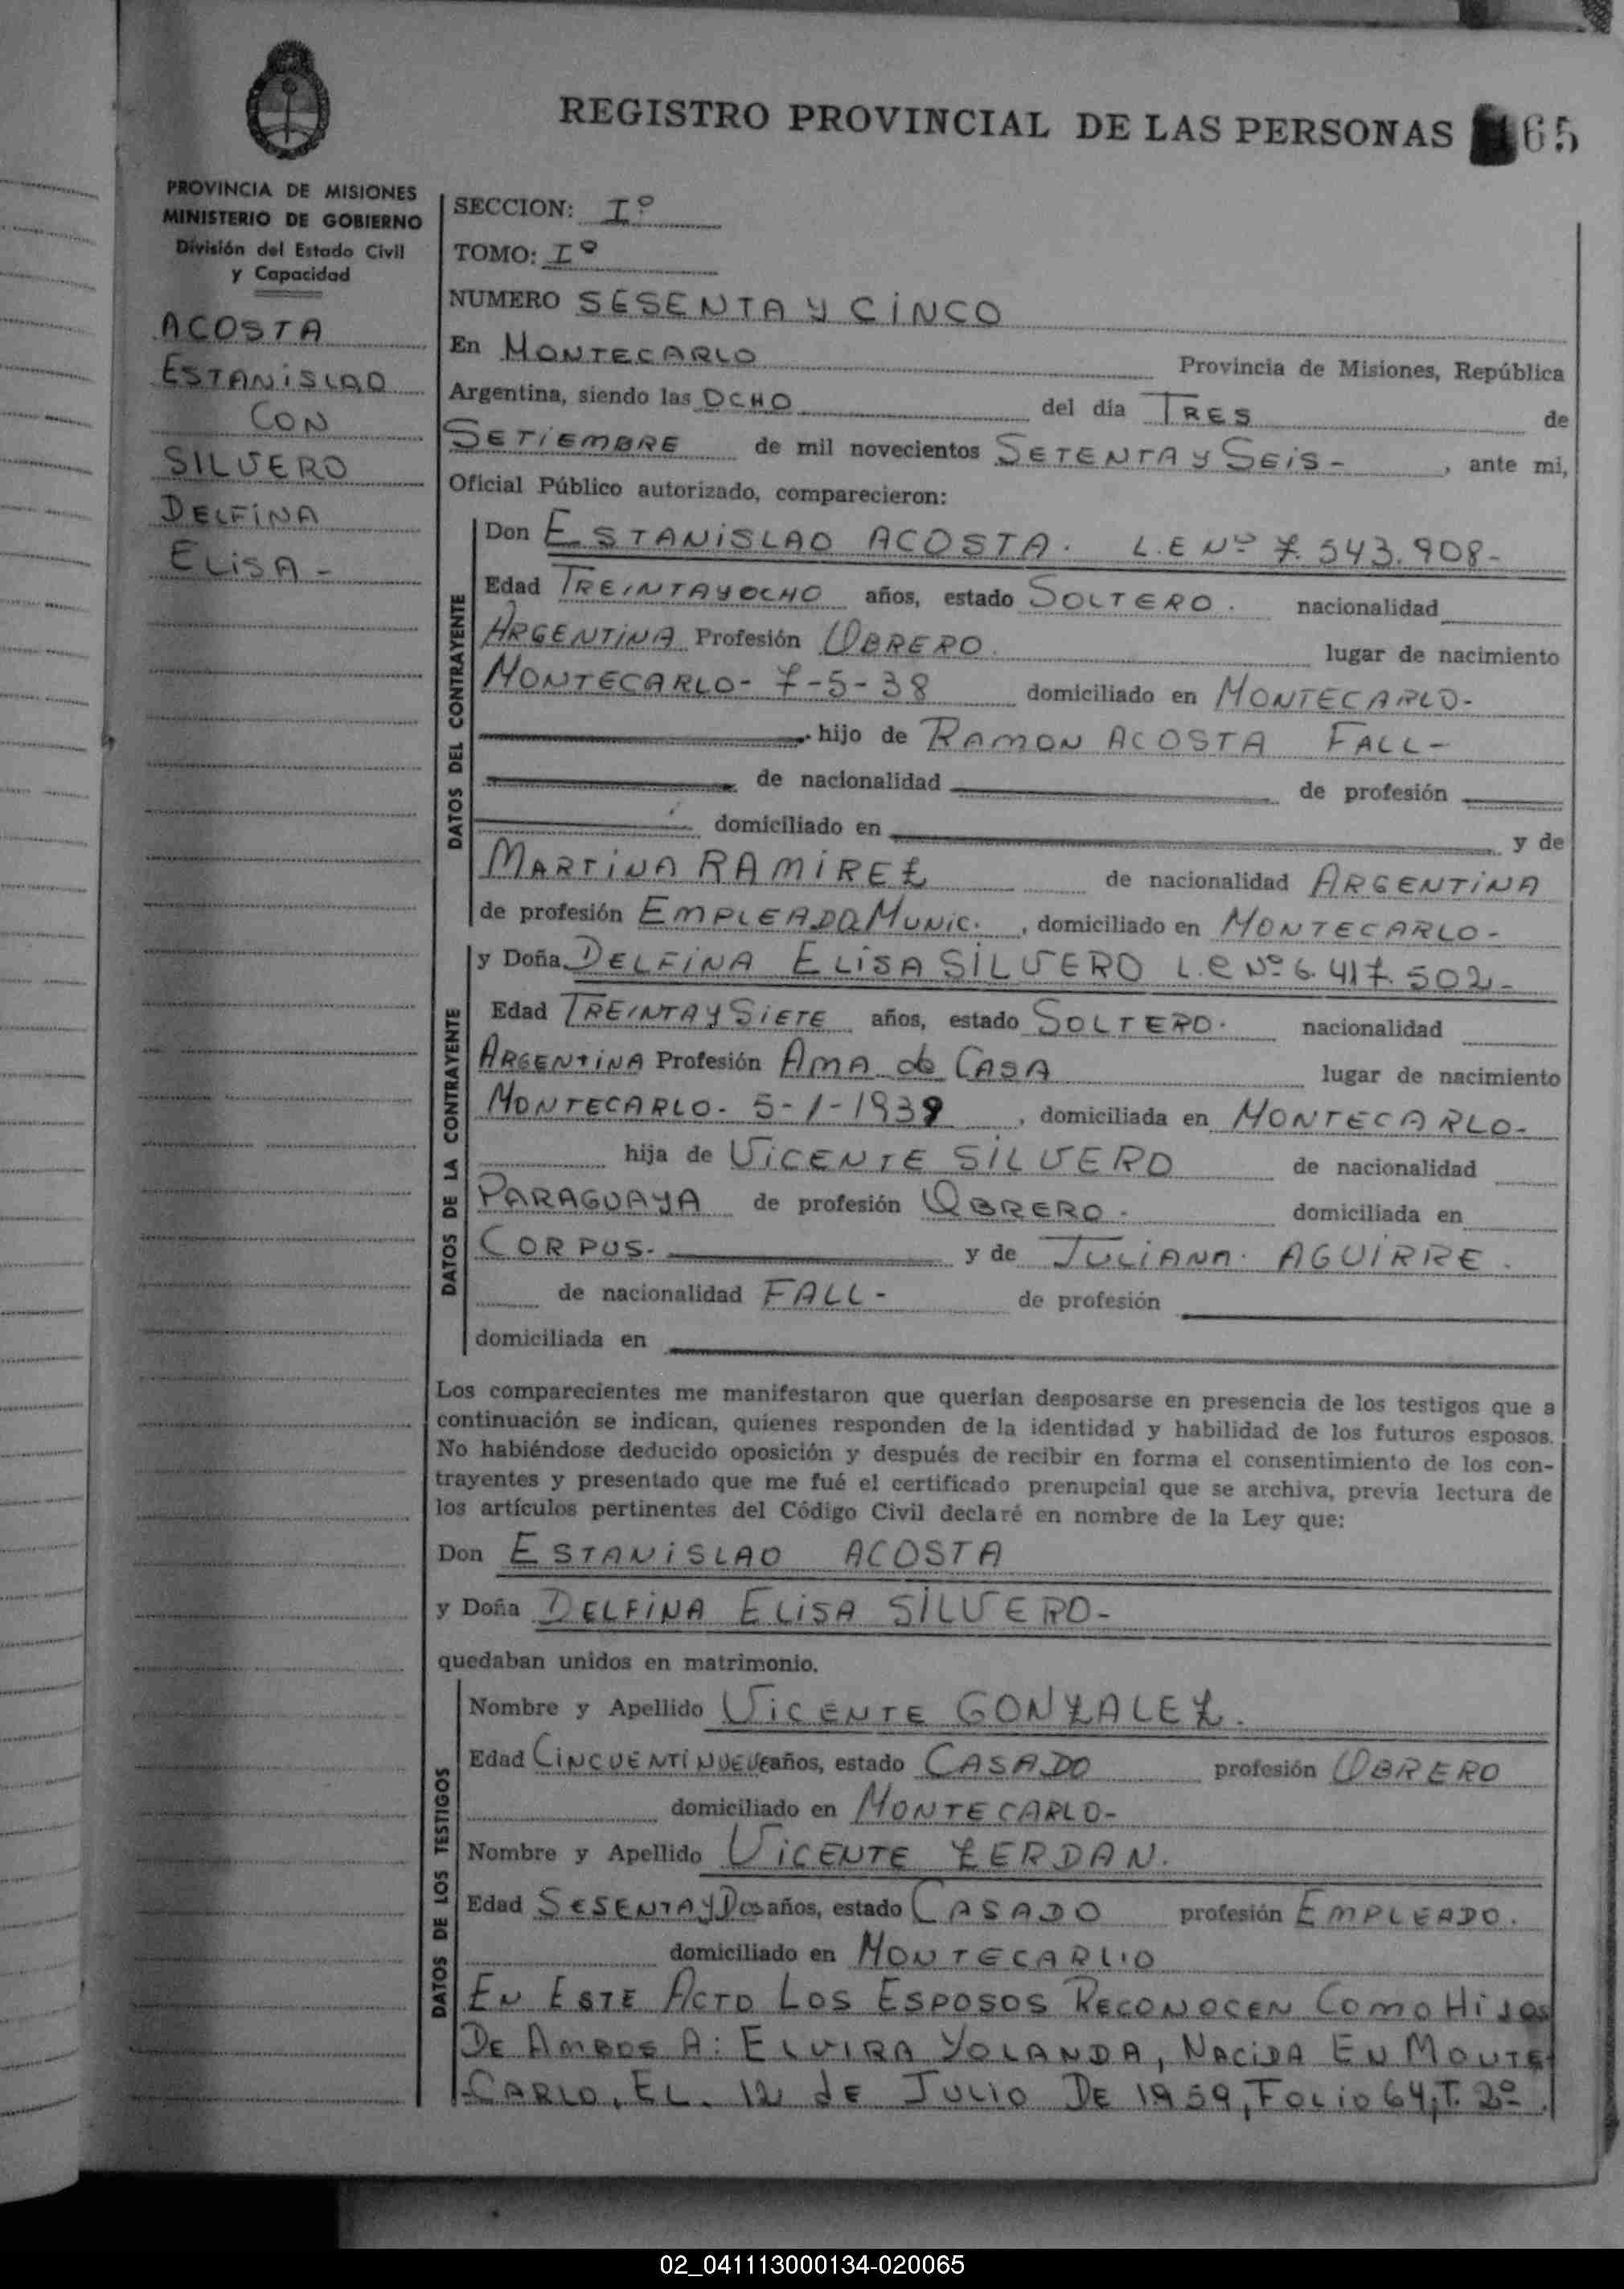 REGISTRO PROVINCIAL DE LAS PERSONAS 65
PROVINCIA DE MISIONES
MINISTERIO DE GOBIERNO
División del Estado Civil
y Capacidad
ACOSTA
ESTANISLAO
CON
SILVERO
DELFINA
ELISA -
SECCION: Iº
TOMO: Iº
NUMERO SESENTA Y CINCO
En MONTECARLO Provincia de Misiones, República
Argentina, siendo las OCHO del día TRES de
SETIEMBRE de mil novecientos SETENTA Y SEIS - , ante mi,
Oficial Público autorizado, comparecieron:
DATOS DEL CONTRAYENTE
Don ESTANISLAO ACOSTA. L.E Nº 7.543.908-
Edad TREINTAYOCHO años, estado SOLTERO. nacionalidad
ARGENTINA Profesión OBRERO. lugar de nacimiento
MONTECARLO- 7-5-38 domiciliado en MONTECARLO-
hijo de RAMON ACOSTA FALL-
de nacionalidad de profesión
domiciliado en y de
MARTINA RAMIREZ de nacionalidad ARGENTINA
de profesión EMPLEADA MUNIC. , domiciliado en MONTECARLO-
DATOS DE LA CONTRAYENTE
y Doña DELFINA ELISA SILVERO L.E Nº 6.417.502-
Edad TREINTA Y SIETE años, estado SOLTERO. nacionalidad
ARGENTINA Profesión AMA de CASA lugar de nacimiento
MONTECARLO- 5-1-1939 , domiciliada en MONTECARLO-
hija de VICENTE SILVERO de nacionalidad
PARAGUAYA de profesión OBRERO. domiciliada en
CORPUS. y de JULIANA. AGUIRRE.
de nacionalidad FALL- de profesión
domiciliada en
Los comparecientes me manifestaron que querían desposarse en presencia de los testigos que a
continuación se indican, quienes responden de la identidad y habilidad de los futuros esposos.
No habiéndose deducido oposición y después de recibir en forma el consentimiento de los con-
trayentes y presentado que me fué el certificado prenupcial que se archiva, previa lectura de
los artículos pertinentes del Código Civil declaré en nombre de la Ley que:
Don ESTANISLAO ACOSTA
y Doña DELFINA ELISA SILVERO-
quedaban unidos en matrimonio.
DATOS DE LOS TESTIGOS
Nombre y Apellido VICENTE GONZALEZ.
Edad CINCUENTINUEVE años, estado CASADO profesión OBRERO
domiciliado en MONTECARLO-
Nombre y Apellido VICENTE ZERDAN.
Edad SESENTA Y DOS años, estado CASADO profesión EMPLEADO.
domiciliado en MONTECARLO
EN ESTE ACTO LOS ESPOSOS RECONOCEN COMO HIJOS
DE AMBOS A: ELVIRA YOLANDA, NACIDA EN MONTE
CARLO, EL. 12 dE JULIO DE 1959, FOLIO 64, T. 2º.
02_041113000134-020065